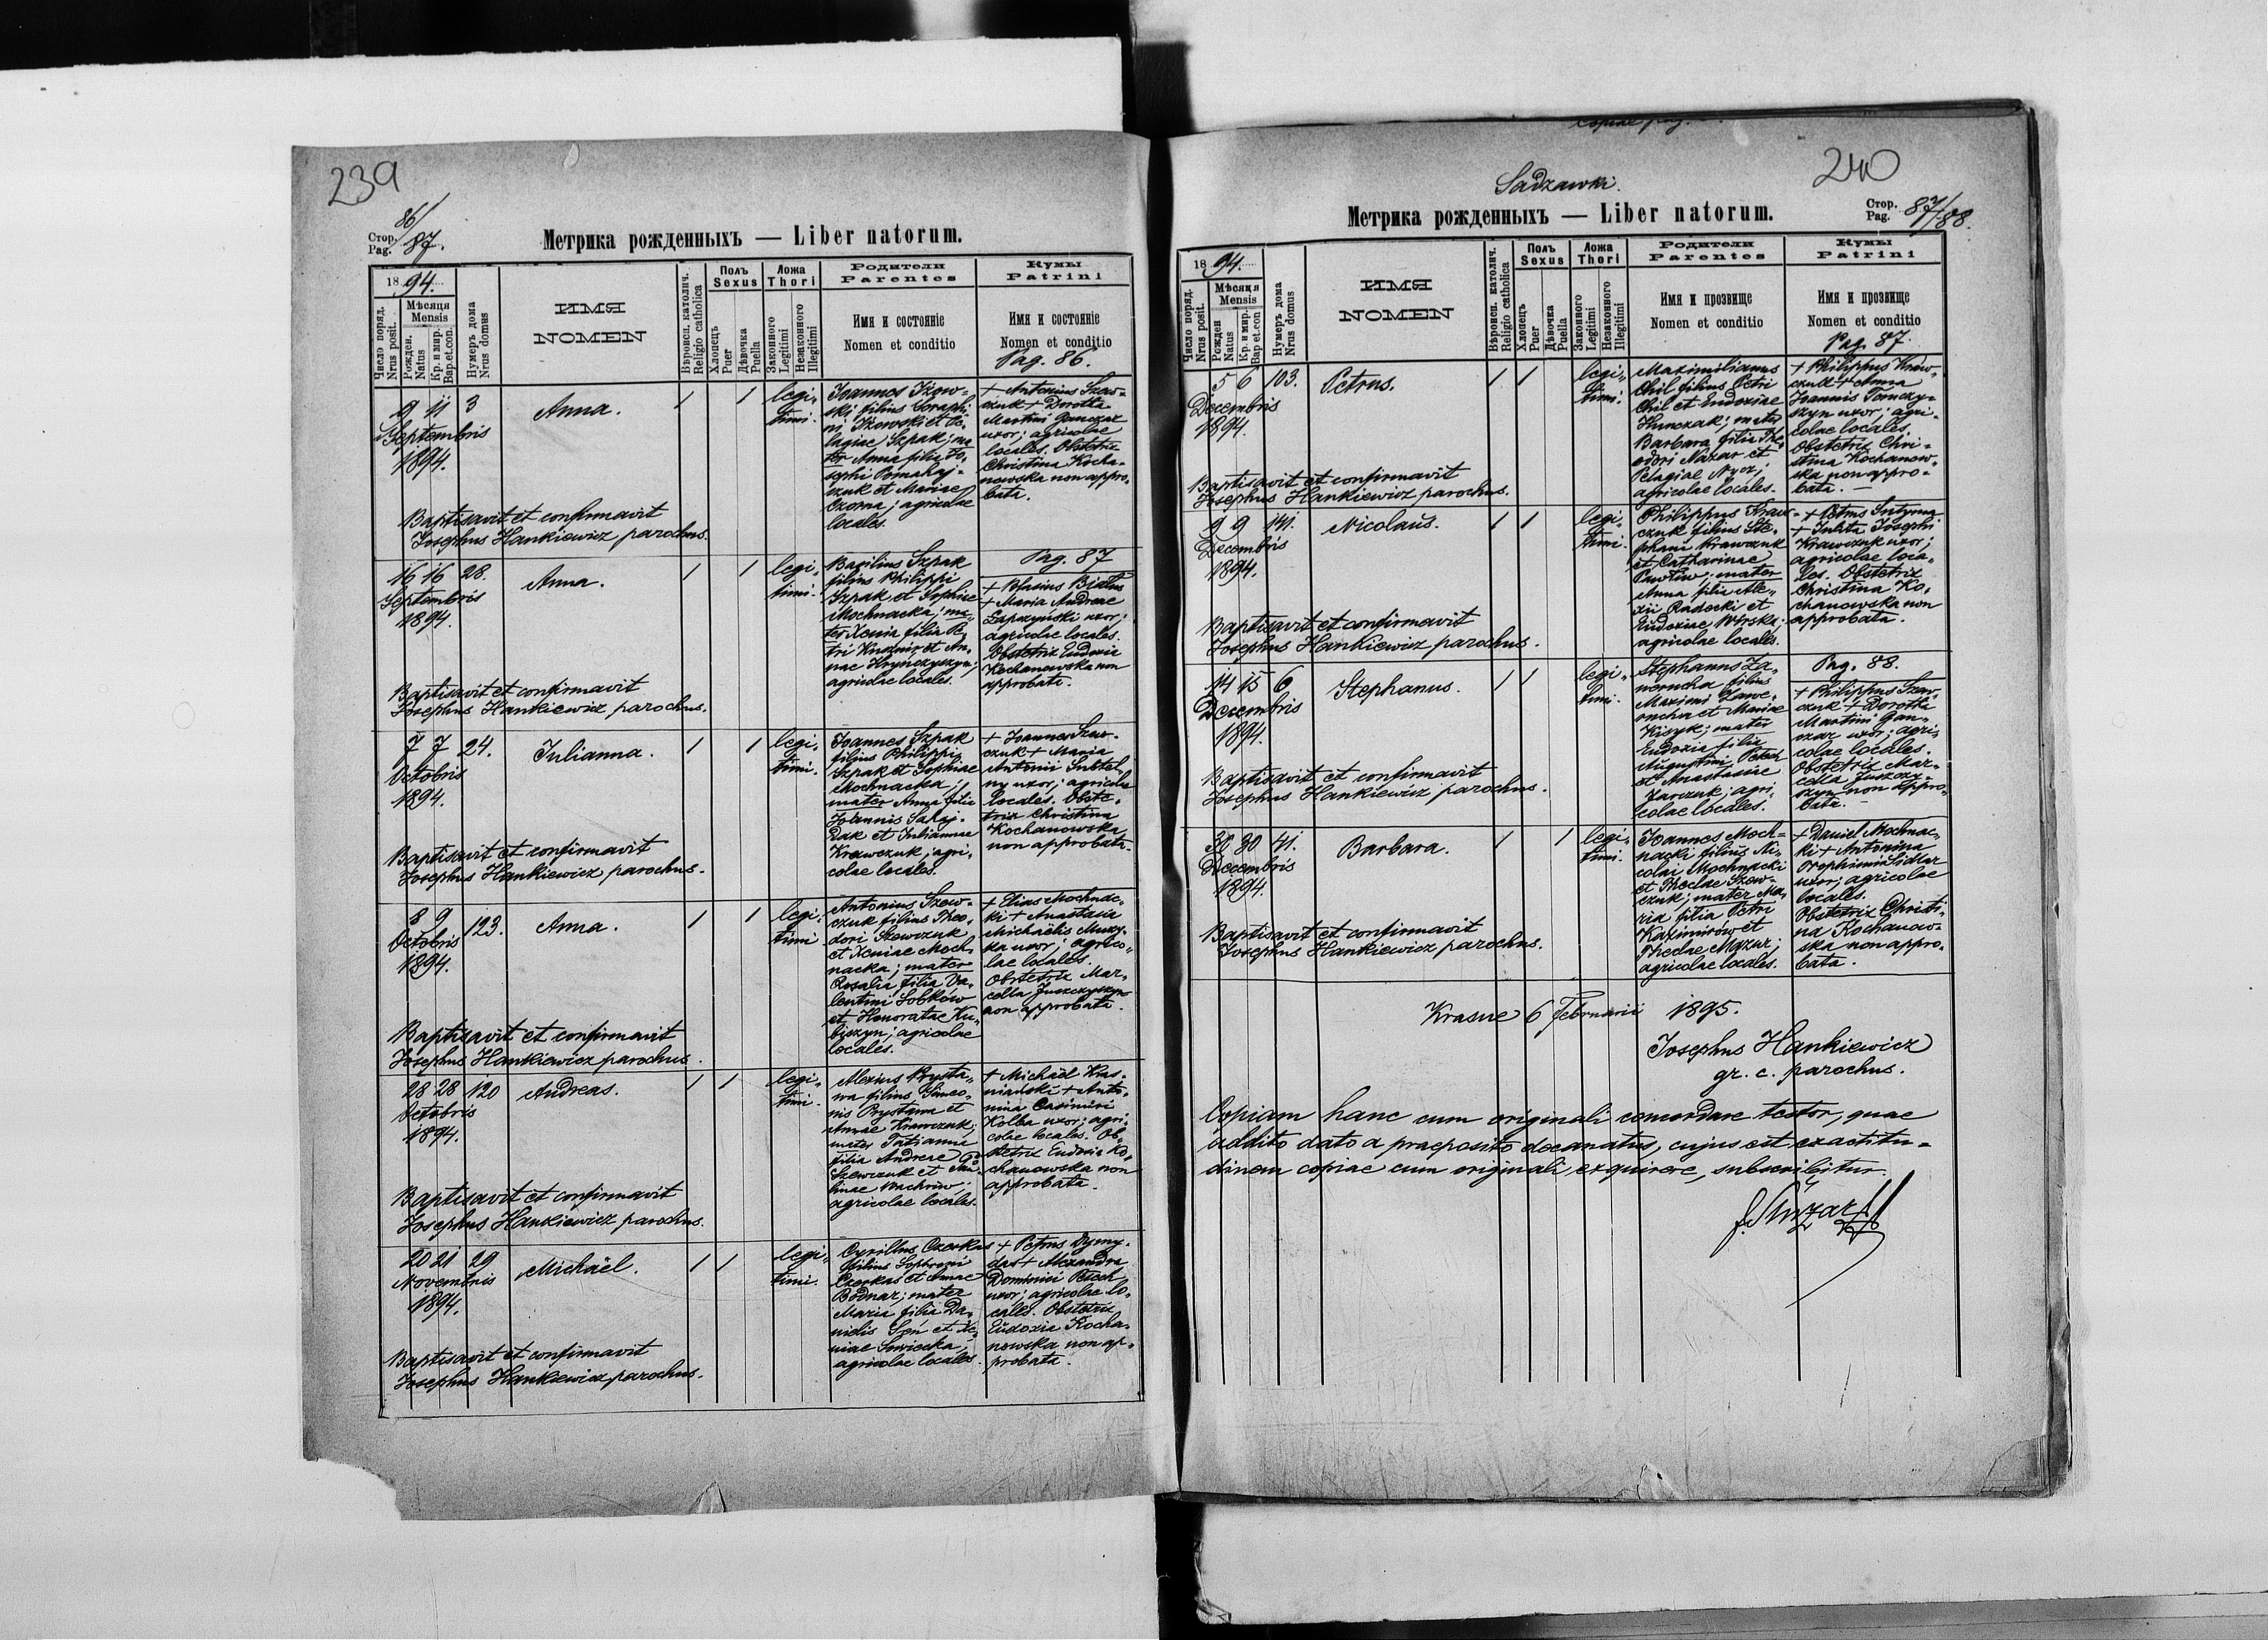 239
86/
Стор.
Pag.
87.
Метрика рожденныхъ — Liber natorum.
18 94.
Число поряд.
Nrus posit.
Мѣсяця
Mensis
Рожден.
Natus
Кр. и мир.
Bap. et. con.
Нумеръ дома
Nrus domus
ИМЯ
NOMEN
Вѣроисп. католич.
Religio catholica
Полъ
Sexus
Хлопецъ
Puer
Дѣвочка
Puella
Ложа
Thori
Законного
Legitimi
Незаконного
Illegitimi
Родители
Parentes
Имя и состоянiе
Nomen et conditio
Кумы
Patrini
Имя и состоянiе
Nomen et conditio
Pag. 86.
9 11 3
Septembris
1894.
Anna.
1 1
legi-
timi.
Ioannes Iżow-
ski filius Seraphi-
ni Iżowski et Pe-
lagiae Szpak; ma-
ter Anna filia Io-
sephi Pomahaj-
czuk et Mariae
Czorna; agricolae
locales.
+ Antonius Szew-
czuk + Dorothea
Martini Ganczar
uxor; agricolae
locales. Obstetrix
Christina Kocha-
nowska non appro-
bata.
Baptisavit et confirmavit
Josephus Hankiewicz parochus.
16 16 28.
Septembris
1894.
Anna.
1 1
legi-
timi.
Basilius Szpak
filius Philippi
Szpak et Sophiae
Mochnacka; ma-
ter Xenia filia Pe-
tri Kuzmir et An-
nae Hryńczyszyn;
agricolae locales.
Pag. 87
+ Blasius Białas
+ Maria Andreae
Lapczyński uxor;
agricolae locales.
Obstetrix Eudoxia
Kochanowska non
approbata.
Baptisavit et confirmavit
Josephus Hankiewicz parochus.
7 7 24.
Octobris
1894.
Iulianna.
1 1
legi-
timi.
Ioannes Szpak
filius Philippi
Szpak et Sophiae
Mochnacka;
mater Anna filia
Ioannis Sahaj-
dak et Iuliannae
Krawczuk; agri-
colae locales.
+ Ioannes Szew-
czuk + Maria
Antonii Subtel-
ny uxor; agricolae
locales. Obste-
trix Christina
Kochanowska
non approbata.
Baptisavit et confirmavit
Josephus Hankiewicz parochus.
8 9 123.
Octobris
1894.
Anna.
1 1
legi-
timi
Antonius Szew-
czuk filius Theo-
dori Szewczuk
et Xeniae Moch-
nacka; mater
Rosalia filia Va-
lentini Sobków
et Honoratae Ku-
biszyn; agricolae
locales.
+ Elias Mochnac-
ki + Anastasia
Michaëlis Muzy-
ka uxor; agrico-
lae locales.
Obstetrix Mar-
cella Juszczyszyn
non approbata.
Baptisavit et confirmavit
Josephus Hankiewicz parochus.
28 28 120
Octobris
1894.
Andreas.
1 1
legi-
timi.
Alexius Prysta-
wa filius Simeo-
nis Prystawa et
Annae Krawczuk;
mater Tatianna
filia Andreae
Szewczuk et
agricolae locales.
+ Michaël Kras-
niański + Anto-
nina Casimiri
Kolba uxor; agri-
colae locales. Ob-
stetrix Eudoxia Ko-
chanowska non
approbata.
Baptisavit et confirmavit
Josephus Hankiewicz parochus.
20 21 29
Novembris
1894.
Michaël.
1 1
legi-
timi.
Cyrillus Czerkas
filius Sophronii
Czerkas et Annae
Bodnar; mater
Maria filia Da-
nielis Syń et Xe-
niae Sawicka;
agricolae locales.
+ Petrus Dymy-
das + Alexandra
Dominici Petech
uxor; agricolae lo-
cales. Obstetrix
Eudoxia Kocha-
nowska non ap-
probata.
Baptisavit et confirmavit
Josephus Hankiewicz parochus.
copiae pag.
Sadzawki.
240
Метрика рожденныхъ — Liber natorum.
Стор.
Pag.
87/88.
18 94.
Число поряд.
Nrus posit.
Мѣсяця
Mensis
Рожден
Natus
Кр. и мир.
Bap. et con
Нумеръ дома
Nrus domus
ИМЯ
NOMEN
Вѣроисп. католич.
Religio catholica
Полъ
Sexus
Хлопецъ
Puer
Дѣвочка
Puella
Ложа
Thori
Законного
Legitimi
Незаконного
Illegitimi
Родители
Parentes
Имя и прозвище
Nomen et conditio
Кумы
Patrini
Имя и прозвище
Nomen et conditio
Pag. 87.
5 6 103.
Decembris
1894.
Petrus.
1 1
legi-
timi.
Maximilianus
Chil filius Petri
Chil et Eudoxiae
Humczak; mater
Barbara filia The-
odori Nazar et
Pelagiae Nycz;
agricolae locales.
+ Philippus Kraw-
czuk + Anna
Ioannis Tomczy-
szyn uxor; agri-
colae locales.
Obstetrix Chri-
stina Kochanow-
ska non appro-
bata. —
Baptisavit et confirmavit
Josephus Hankiewicz parochus.
9 9 141.
Decembris
1894.
Nicolaus.
1 1
legi-
timi.
Philippus Kraw-
czuk filius Ste-
phani Krawczuk
et Catharinae
Pawłiw; mater
Anna filia Ale-
xii Radecki et
Eudoxiae Wirska;
agricolae locales.
+ Petrus Smtyma
+ Iulita Iosephi
Krawczuk uxor;
agricolae loca-
les. Obstetrix
Christina Ko-
chanowska non
approbata.
Baptisavit et confirmavit
Josephus Hankiewicz parochus.
14 15 6
Decembris
1894.
Stephanus.
1 1
legi-
timi.
Stephanus Za-
werucha filius
Maximi Zawe-
rucha et Mariae
Kisyk; mater
Eudoxia filia
Augustini Petech
et Anastasiae
Harczuk; agri-
colae locales.
Pag. 88.
+ Philippus Szew-
czuk + Dorothea
Martini Gan-
czar uxor; agri-
colae locales.
Obstetrix Mar-
cella Juszczy-
szyn non appro-
bata. —
Baptisavit et confirmavit
Josephus Hankiewicz parochus.
30 30 41.
Decembris
1894.
Barbara.
1 1
legi-
timi.
Ioannes Moch-
nacki filius Ni-
colai Mochnacki
et Theclae Szew-
czuk; mater Ma-
ria filia Petri
Kazimirów et
Theclae Mazur;
agricolae locales.
+ Daniel Mochnac-
ki + Antonina
Trophimi Sidlar
uxor; agricolae
locales.
Obstetrix Christi-
na Kochanow-
ska non appro-
bata.
Baptisavit et confirmavit
Josephus Hankiewicz parochus.
Krasne 6 Februarii 1895.
Josephus Hankiewicz
gr. c. parochus.
Copiam hanc cum originali concordare testor, quae
addito dato a praeposito decanatus, cujus est exactitu-
dinem copiae cum originali exquirere, subscribitur.